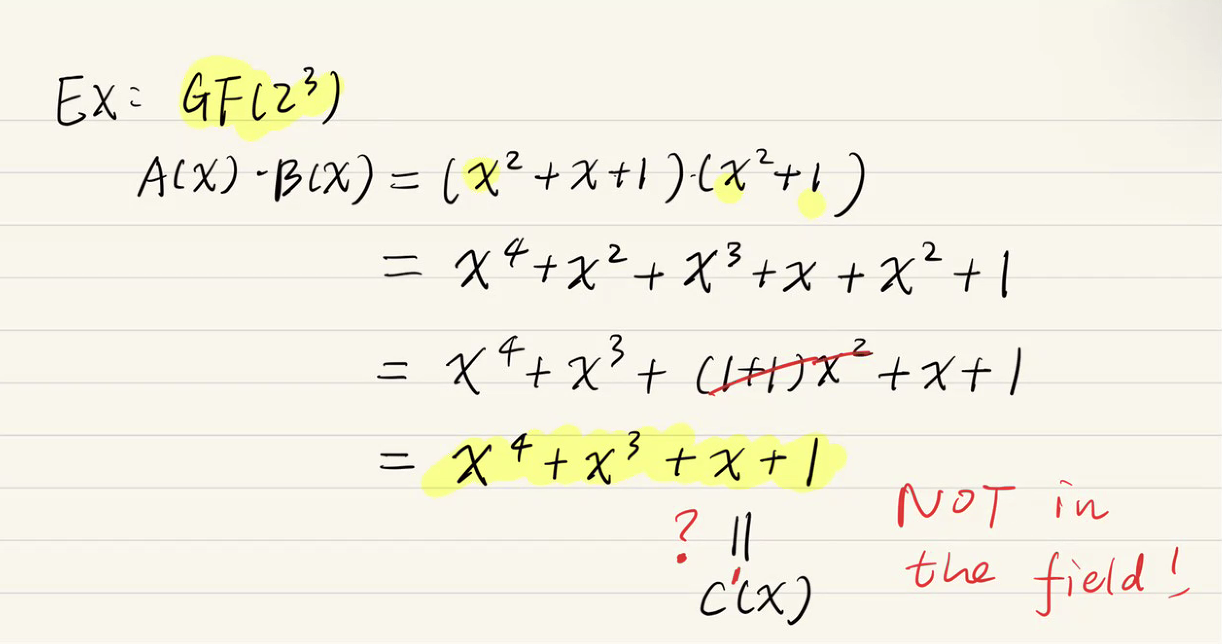 Ex: GF(2³)
A(X)·B(X) = (x²+x+1)·(x²+1)
= x⁴+x²+x³+x+x²+1
= x⁴+x³+(1+1)x²+x+1
= x⁴+x³+x+1
? || NOT in
C'(X) the field!